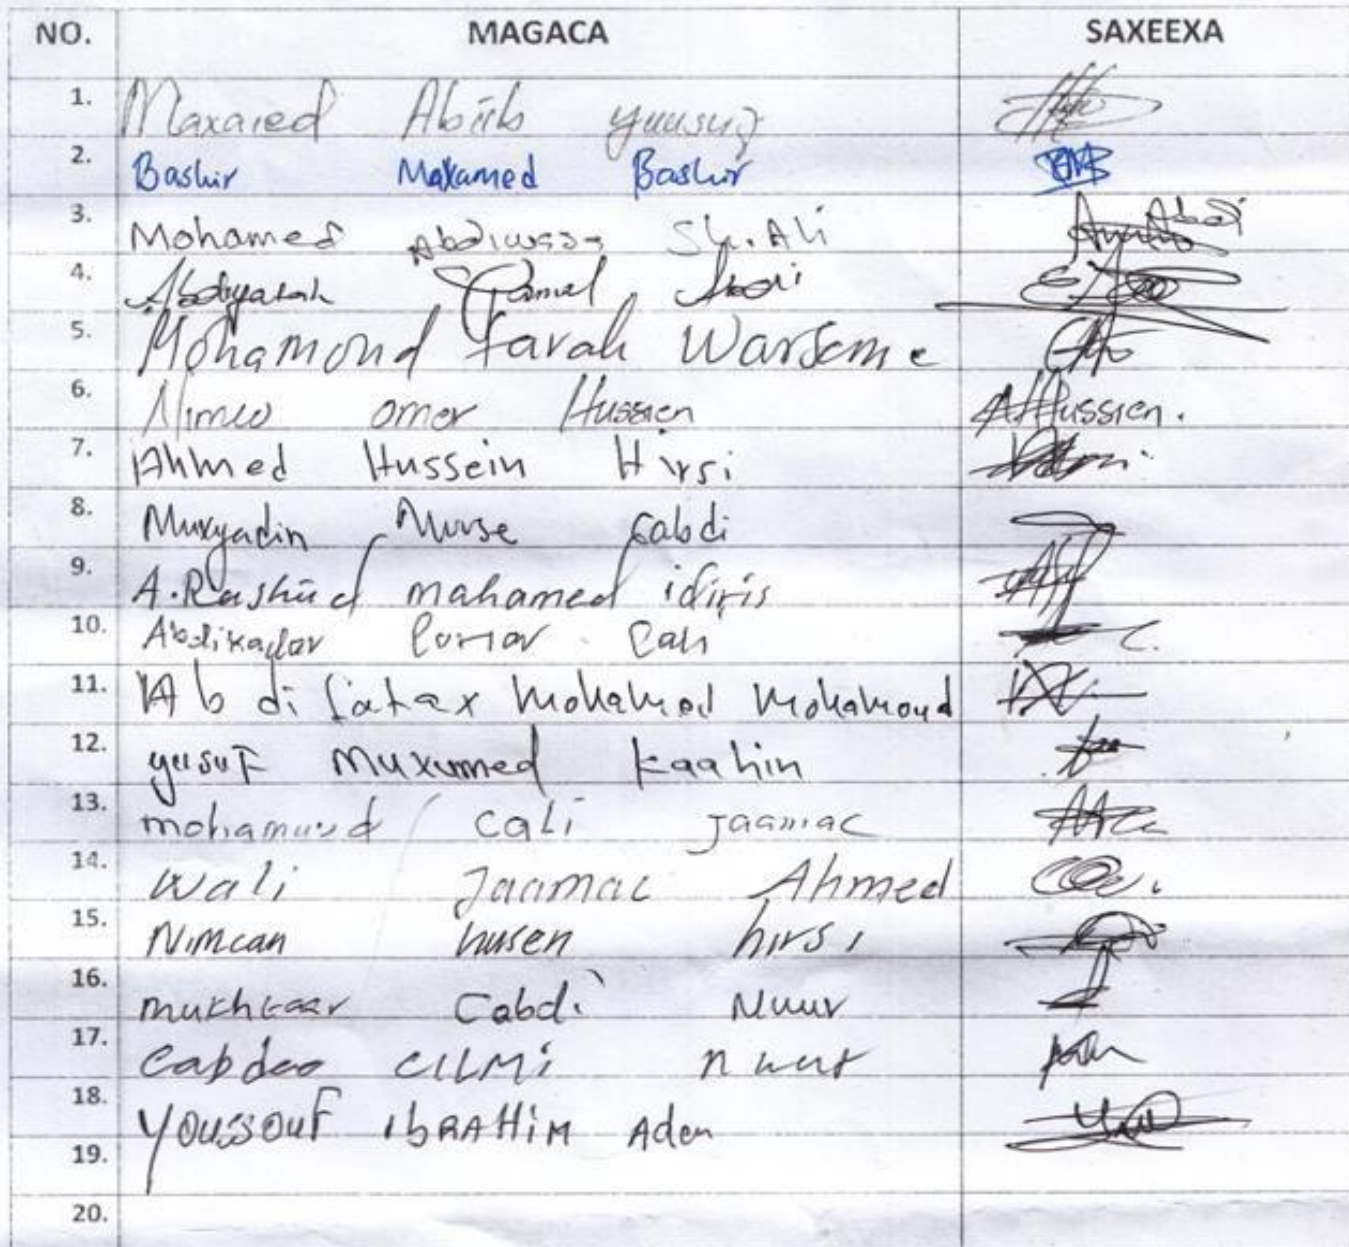 NO. MAGACA SAXEEXA
1. Maxamed Abiib yuusuf
2. Bashir Maxamed Bashir BMB
3. Mohamed Sh. Ali
4. Jamal Abdi
5. Mohamoud Farah Warsame
6. Nimco omer Hussien AHussien.
7. Ahmed Hussein Hirsi
8. Muxyadin Muse Cabdi
9. A.Rashiid mahamed idiris
10. Abdikader Cumar Cali
11. Abdifatax Mohamed Mohamoud
12. yusuf Muxumed Kaahin
13. mohamuud Cali Jaamac
14. Wali Jaamac Ahmed
15. Nimcan husen hirsi
16. mukhtaar Cabdi Nuur
17. CILMi nuur
18. YOUSSOUF IBRAHiM Aden
19.
20.